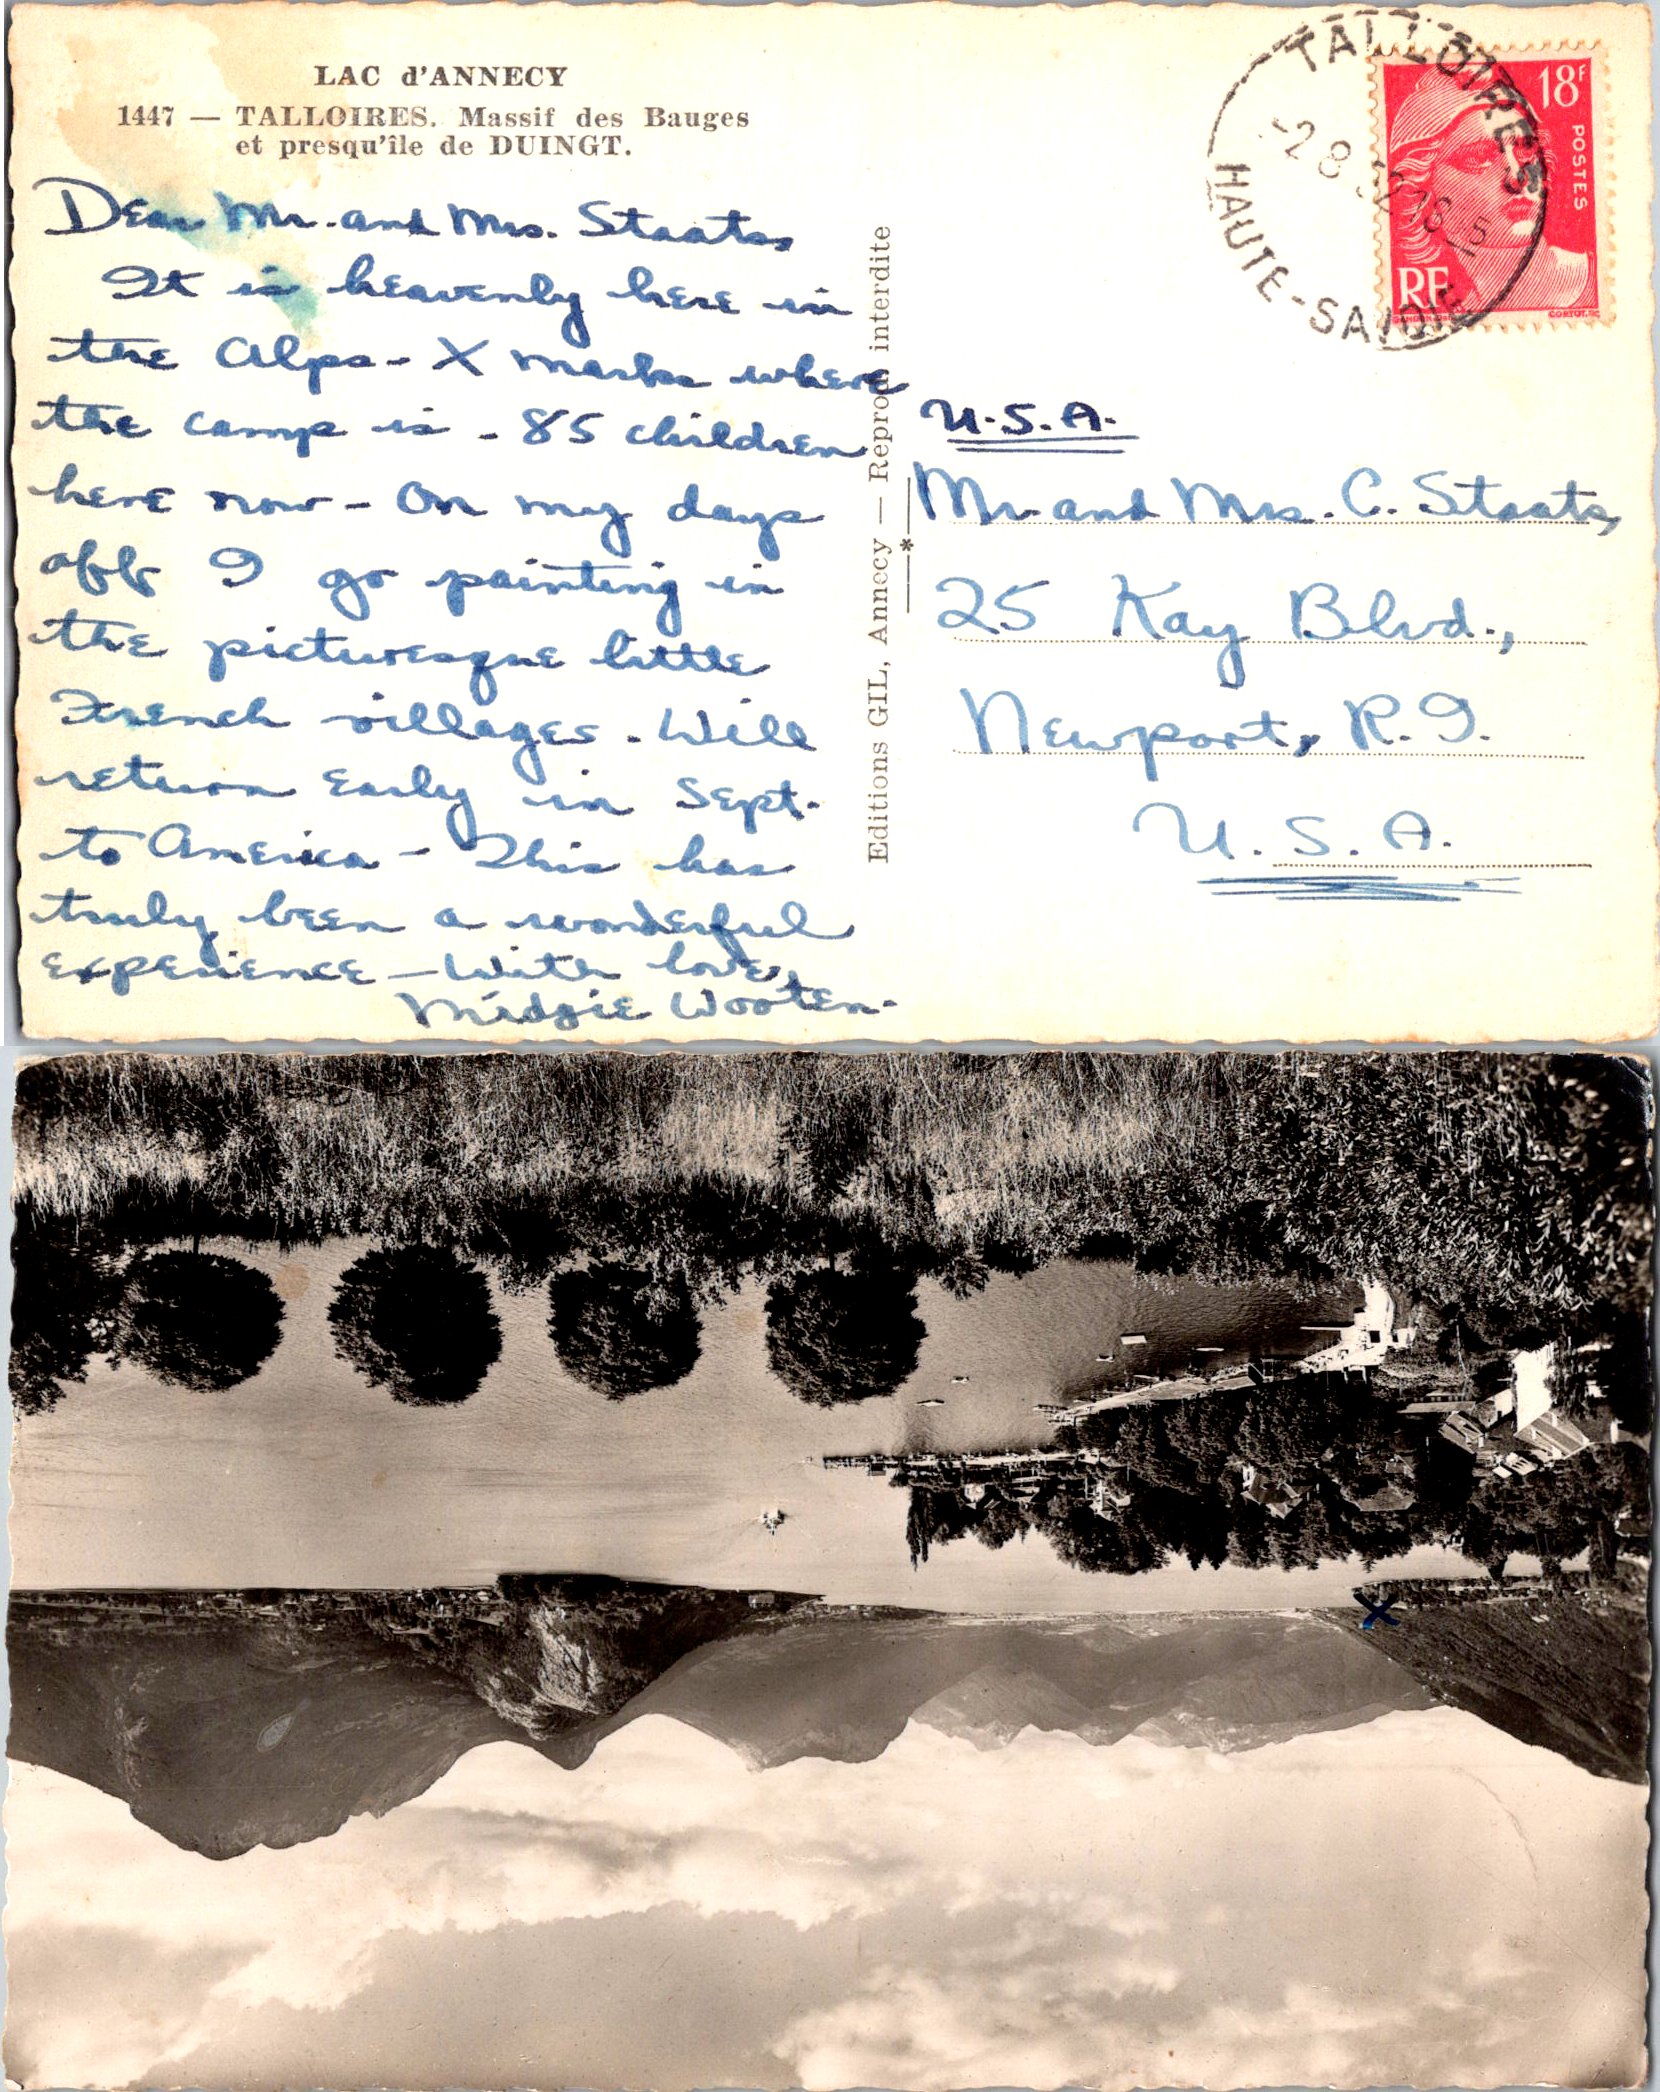 LAC d'ANNECY
1447 — TALLOIRES. Massif des Bauges
et presqu'île de DUINGT.
Dear Mr. and Mrs. Staats,
It is heavenly here in
the Alps - X marks where
the camp is - 85 children
here now - On my days
off I go painting in
the picturesque little
French villages. Will
return early in Sept.
to America - This has
truly been a wonderful
experience - With love,
Midgie Wooten-
Editions GIL, Annecy — Reprod interdite
TALLOIRES
-2 8
HAUTE-SAVOIE
18F
POSTES
RF
GANDON
CORTOT.SC
U.S.A.
Mr and Mrs. C. Staats,
25 Kay Blvd.,
Newport, R.I.
U.S.A.
X